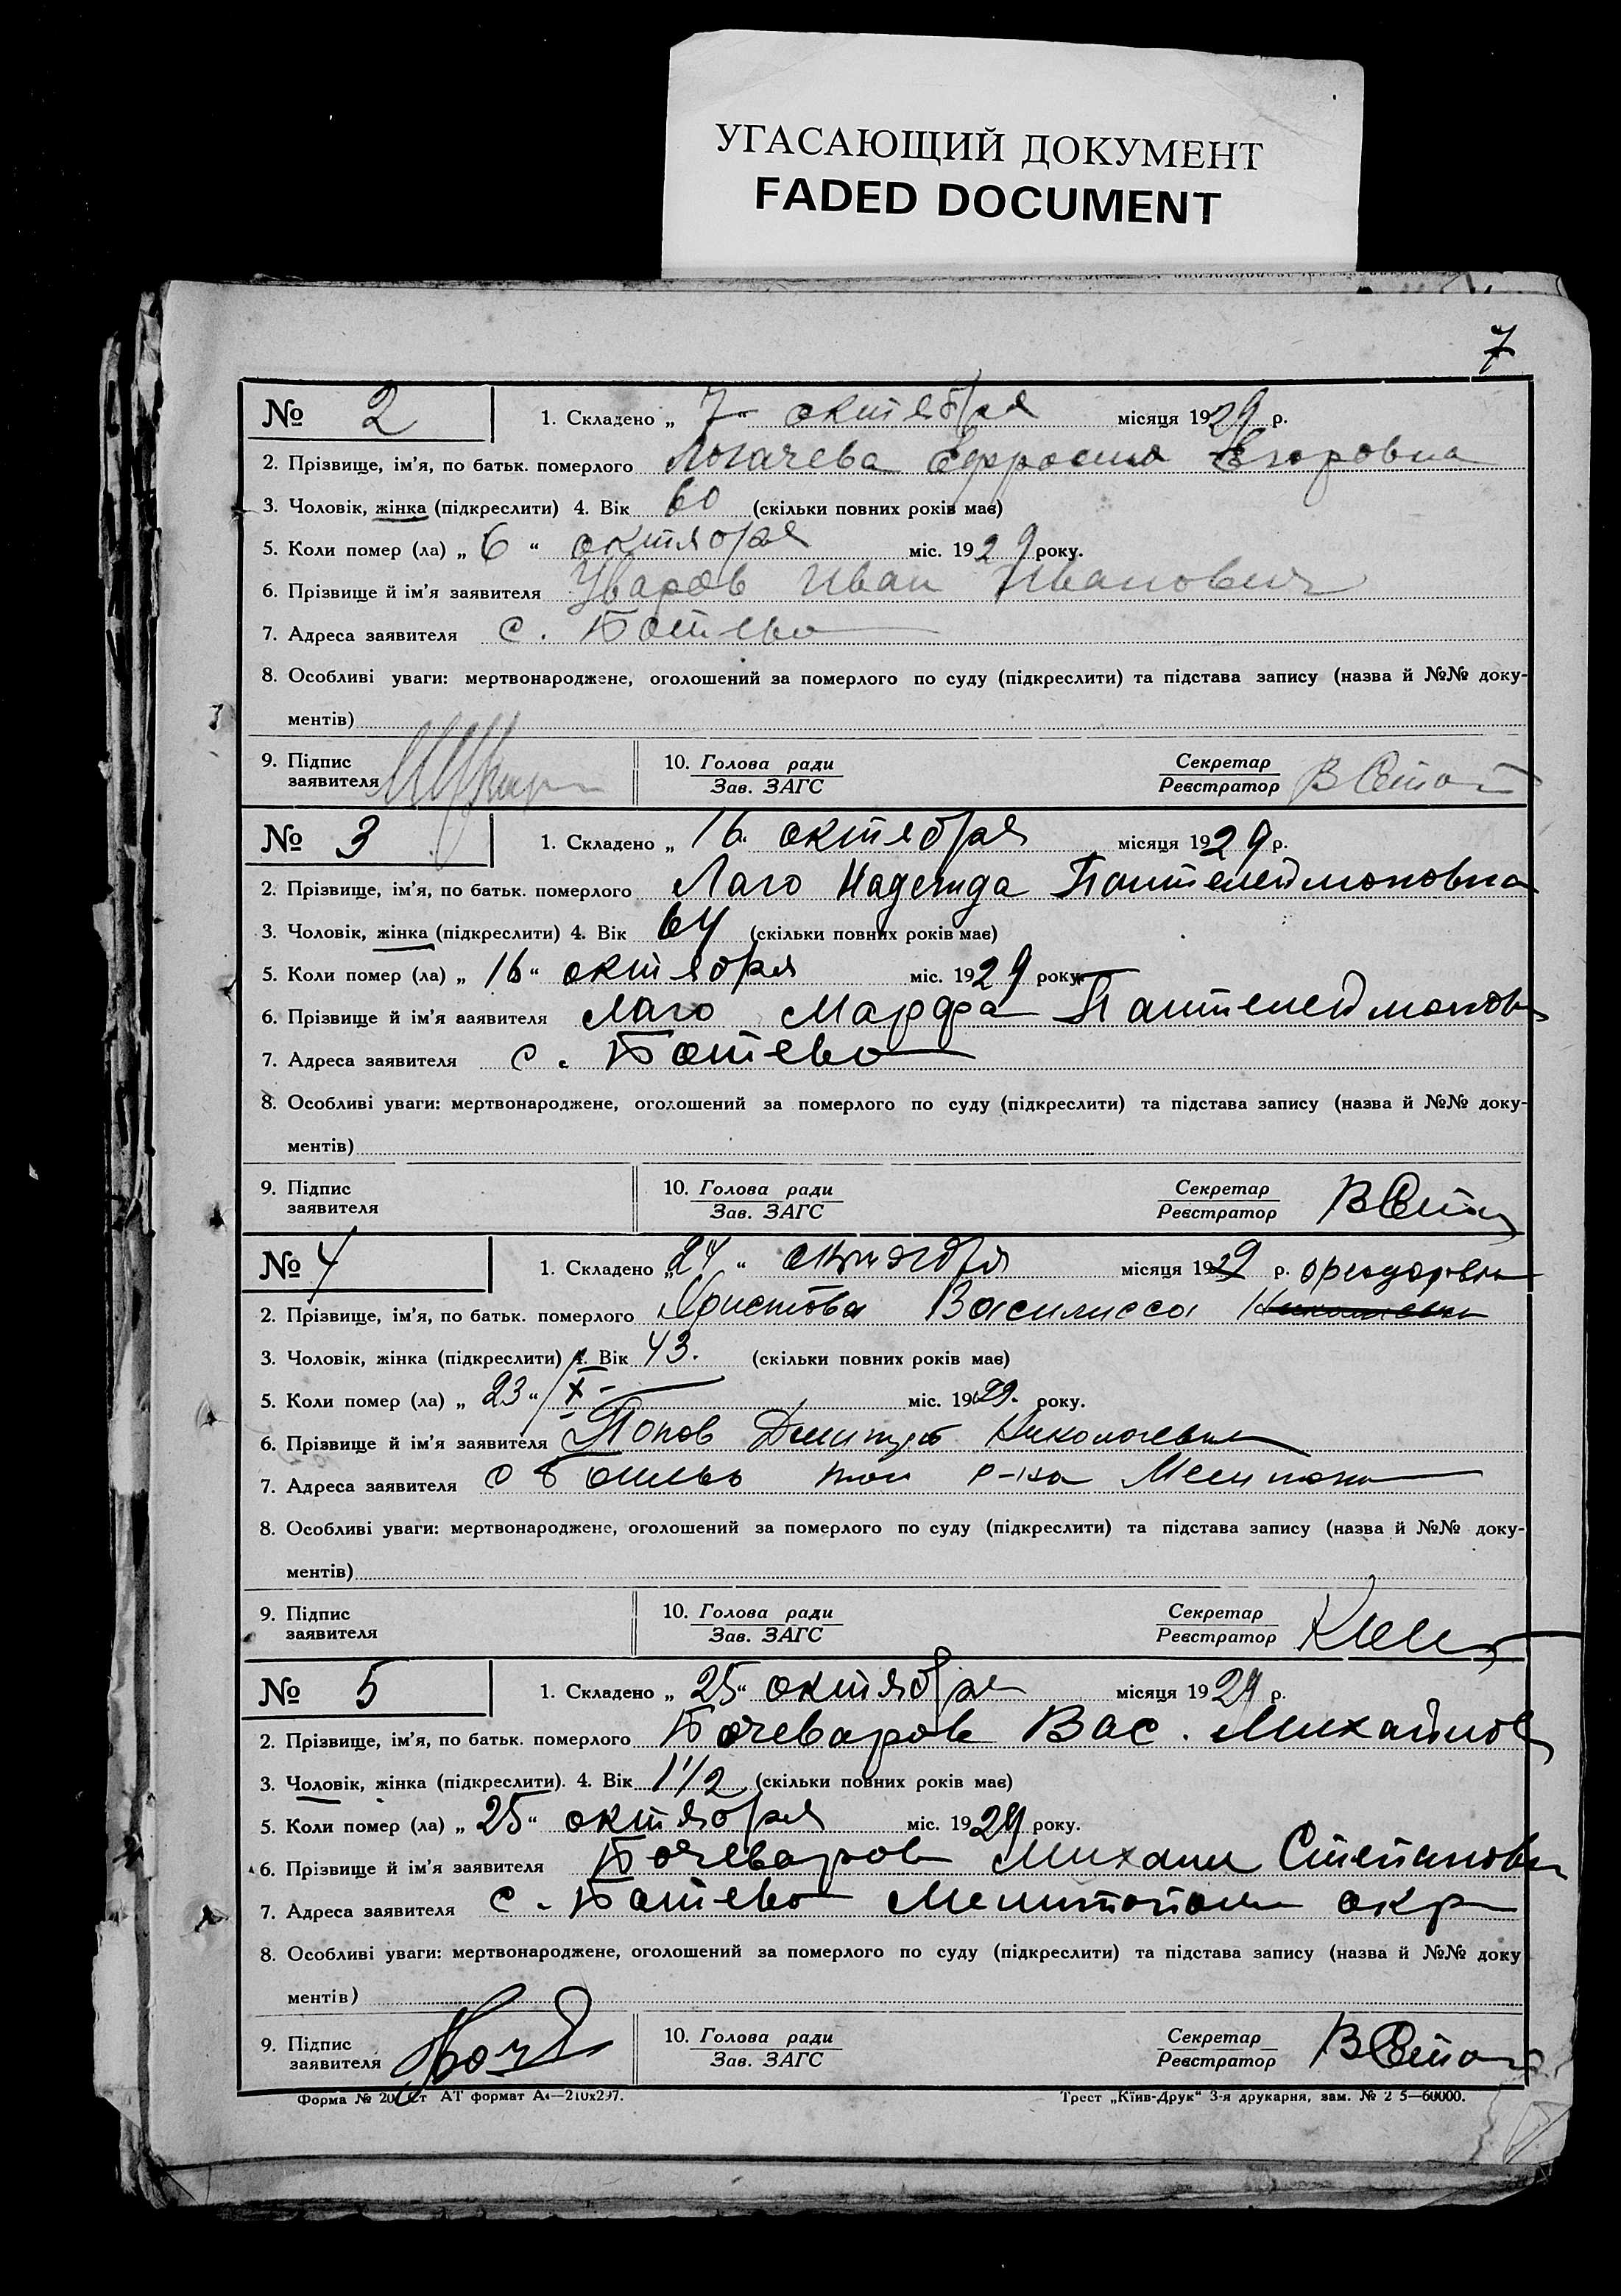 УГАСАЮЩИЙ ДОКУМЕНТ
FADED DOCUMENT
7
№ 2 1. Складено „ 7 “ октября місяця 1929 р.
2. Прізвище, ім’я, по батьк. померлого Логачева Ефросиня Егоровна
3. Чоловік, жінка (підкреслити) 4. Вік 60 (скільки повних років має)
5. Коли помер (ла) „ 6 “ октября міс. 1929 року.
6. Прізвище й ім’я заявителя Уваров Иван Иванович
7. Адреса заявителя с. Ботьево
8. Особливі уваги: мертвонароджене, оголошений за померлого по суду (підкреслити) та підстава запису (назва й №№ доку-
ментів)
9. Підпис заявителя 10. Голова ради Зав. ЗАГС Секретар Реєстратор
№ 3 1. Складено „ 16 “ октября місяця 1929 р.
2. Прізвище, ім’я, по батьк. померлого Лаго Надежда Пантелеймоновна
3. Чоловік, жінка (підкреслити) 4. Вік 64 (скільки повних років має)
5. Коли помер (ла) „ 16 “ октября міс. 1929 року.
6. Прізвище й ім’я ааявителя Лаго Марфа Пантелеймонов
7. Адреса заявителя с. Ботьево
8. Особливі уваги: мертвонароджене, оголошений за померлого по суду (підкреслити) та підстава запису (назва й №№ доку-
ментів)
9. Підпис заявителя 10. Голова ради Зав. ЗАГС Секретар Реєстратор
№ 4 1. Складено „ 24 “ октября місяця 1929 р.
2. Прізвище, ім’я, по батьк. померлого Христова Василисса
3. Чоловік, жінка (підкреслити) 4. Вік 43. (скільки повних років має)
5. Коли помер (ла) „ 23 “ /X- міс. 1929. року.
6. Прізвище й ім’я заявителя Попов Дмитрий Николаевич
7. Адреса заявителя с Ботьево р-на
8. Особливі уваги: мертвонароджене, оголошений за померлого по суду (підкреслити) та підстава запису (назва й №№ доку-
ментів)
9. Підпис заявителя 10. Голова ради Зав. ЗАГС Секретар Реєстратор
№ 5 1. Складено „ 25 “ октября місяця 1929 р.
2. Прізвище, ім’я, по батьк. померлого Бочеваров Вас. Михайлов
3. Чоловік, жінка (підкреслити). 4. Вік 1 1/2 (скільки повних років має)
5. Коли помер (ла) „ 25 “ октября міс. 1929 року.
6. Прізвище й ім’я заявителя Бочеваров Михаил Степанович
7. Адреса заявителя с. Ботьево Мелитопол окр
8. Особливі уваги: мертвонароджене, оголошений за померлого по суду (підкреслити) та підстава запису (назва й №№ доку
ментів)
9. Підпис заявителя 10. Голова ради Зав. ЗАГС Секретар Реєстратор
АТ формат А4—210х297. Трест „Київ-Друк“ 3-я друкарня, зам. № 2 5—60000.